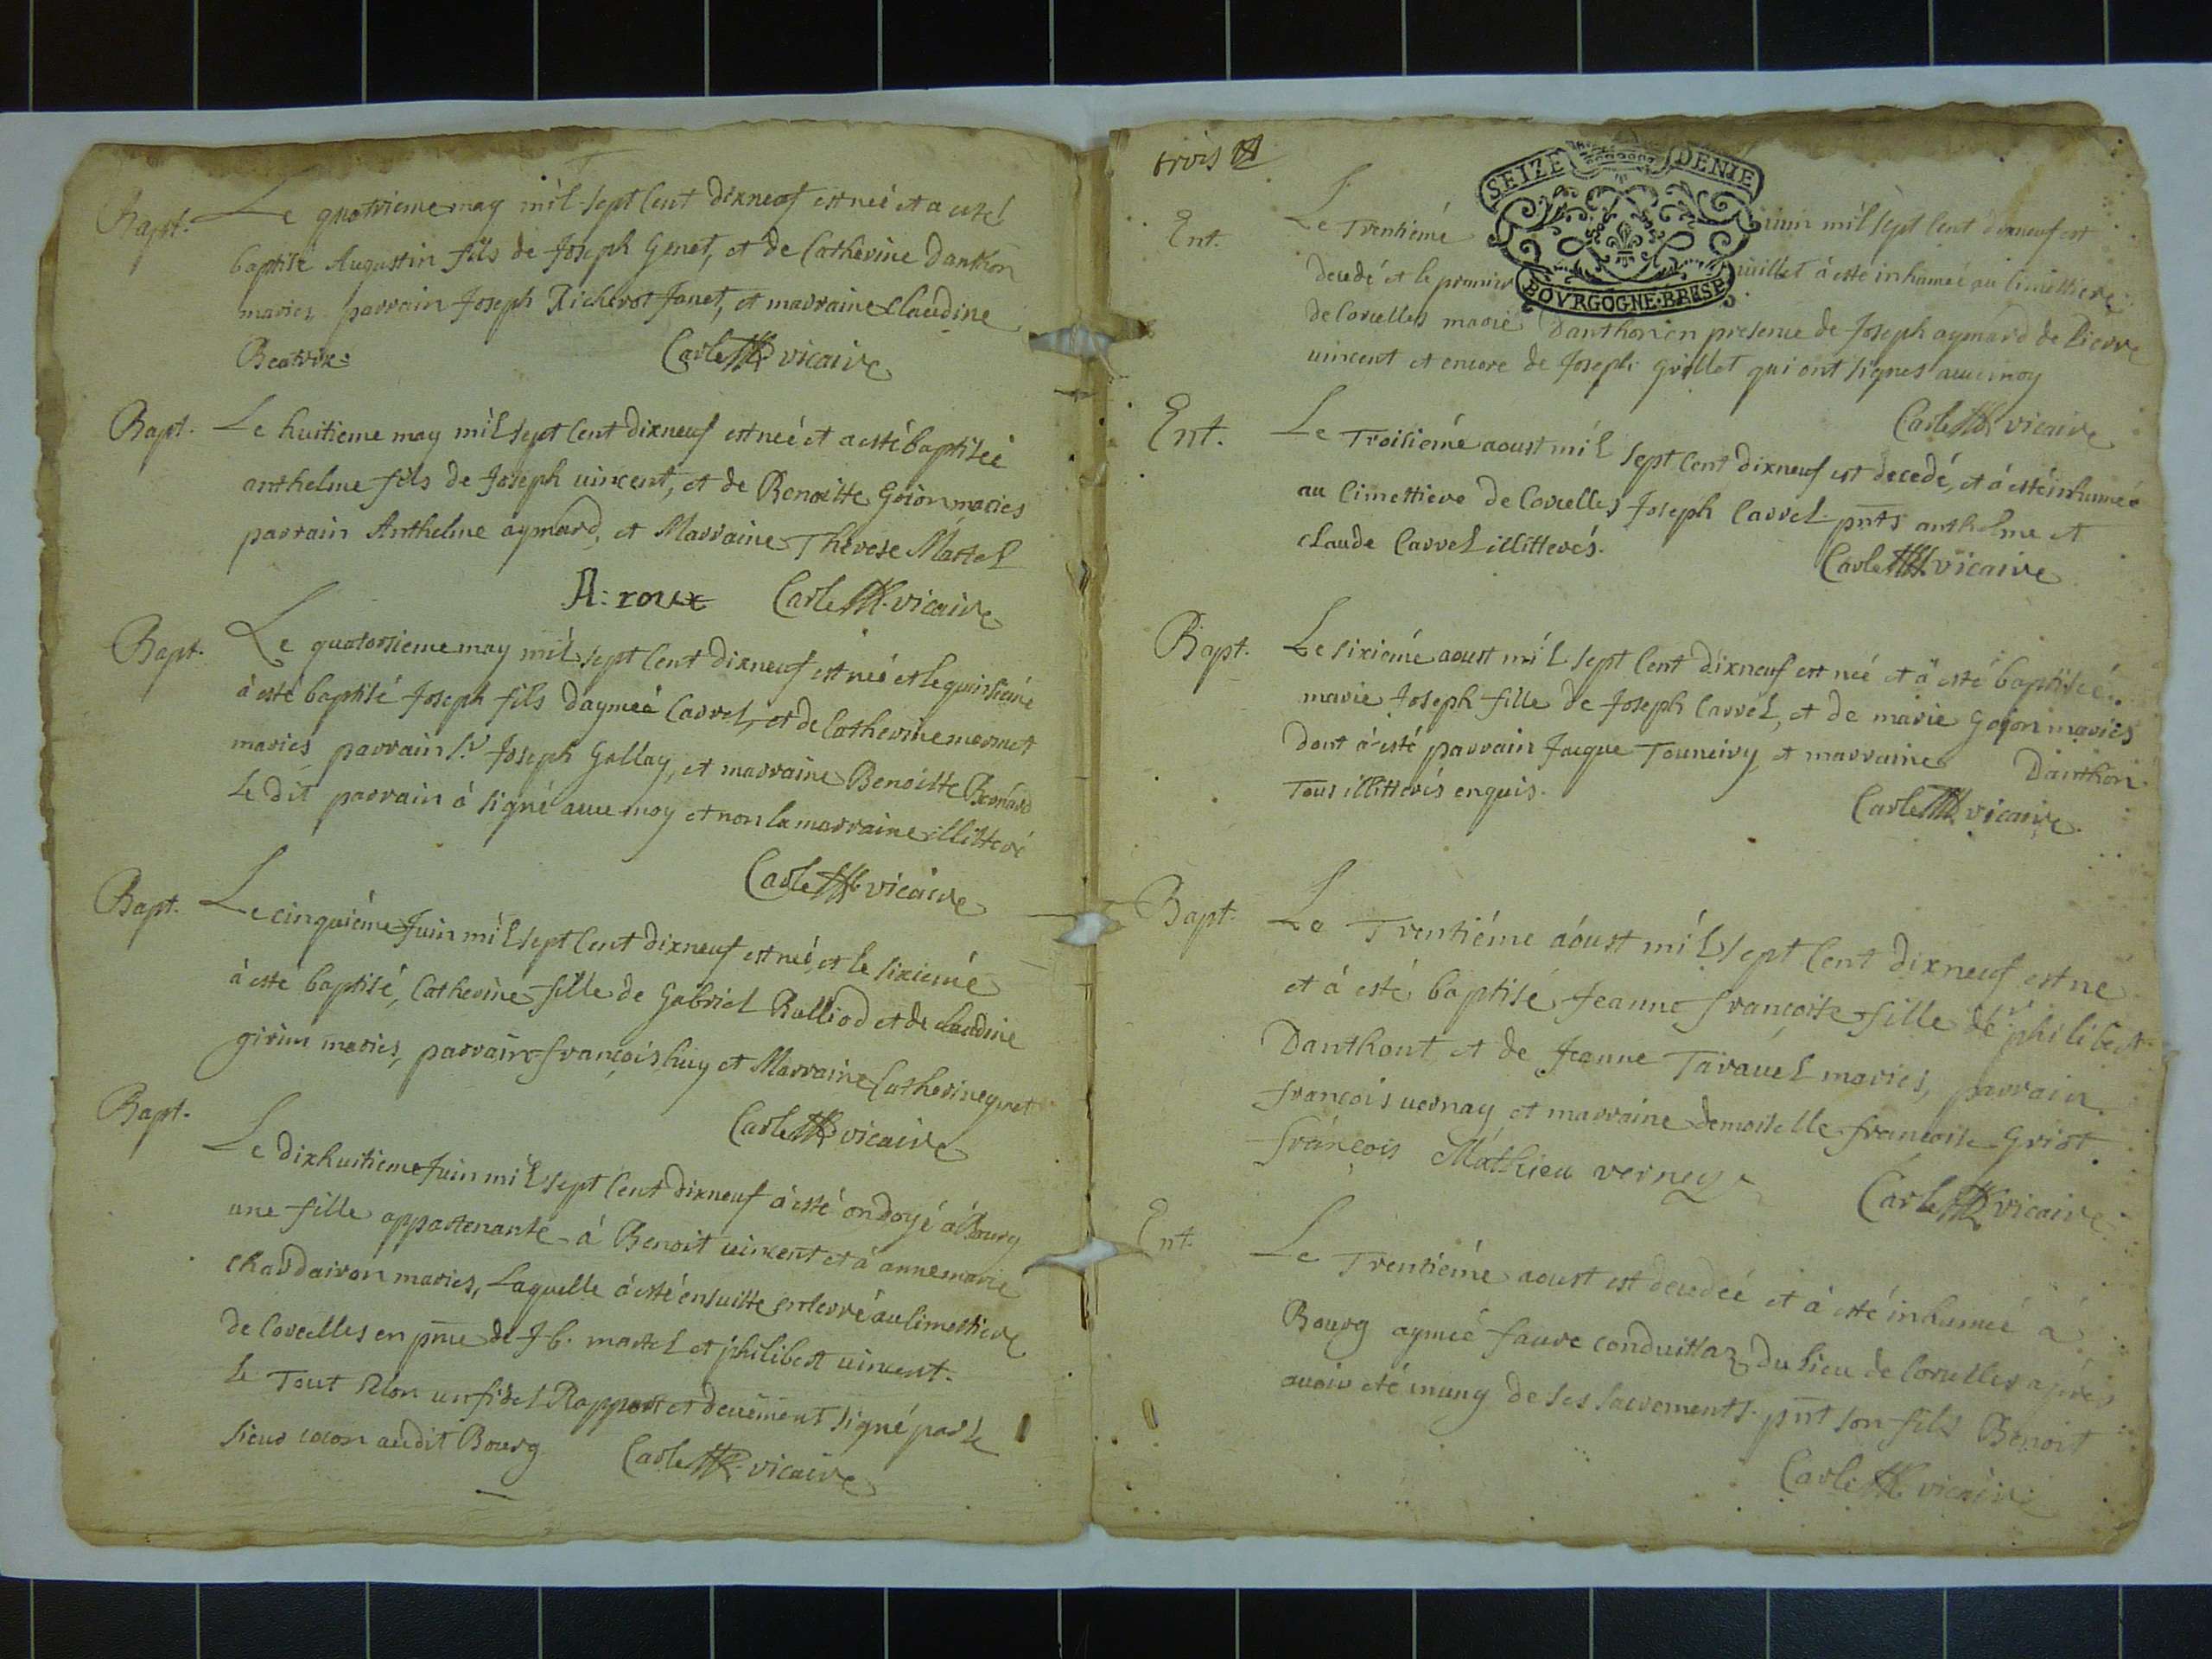 Bapt. Le quatrieme may mil sept Cent dixneuf est neé et a esté
baptisé Augustin fils de Joseph Genet, et de Catherine Danthon
maries parrain Joseph Richerot Janet, et marraine Claudine
Beatrix. Carle vicaire
Bapt. Le huitieme may mil sept Cent dixneuf est neé et a esté baptiseé
anthelme fils de Joseph vincent, et de Benoitte Goion maries
parrain Anthelme aymard, et Marraine Therese Martel
A: roux Carle vicaire
Bapt. Le quatorsieme may mil sept Cent dixneuf est neé et le quinsiéme
à esté baptisé Joseph fils daymeé Carrel, et de Catherine mermet
maries parrain Sr Joseph Gallay, et marraine Benoitte Bernard
Le dit parrain à signé auec moy et non la marraine illitteré
Carle vicaire
Bapt. Le cinquiéme Juin mil sept Cent dixneuf est neé, et le sixiemé
à esté baptisé, Catherine fille de Gabriel Ralliod et de claudine
girim maries, parrain françois huy et Marraine Catherine genet
Carle vicaire
Bapt. Le dixhuitieme Juin mil sept Cent dixneuf à esté ondoyé à Bourg
une fille appartenante à Benoit vincent et à anne marie
chaudairon maries, Laquelle à esté ensuitte enterré au Cimettiere
de Corcelles en pnce de J b. martel et philibert vincent.
Le Tout selon un fidel Rapport et deuement signé par le
sieur cocon audit Bourg. Carle vicaire
trois
SEIZE DENIE
BOVRGOGNE·BRESE
Ent. Le Trentiémé iuin mil sept Cent dixneuf est
decedé et le premier iuillet à esté inhumeé au Cimettiere
de Corcelles marie Danthon en presence de Joseph aymard de Pierre
vincent et encore de Joseph grillet qui ont signes auec moy
Carle vicaire
Ent. Le Troisiémé aoust mil sept Cent dixneuf est decedé, et à esté inhumeé
au Cimettiere de Corcelles Joseph Carrel pnts anthelme et
claude Carrel illitterés. Carle vicaire
Bapt. Le sixiémé aoust mil sept Cent dixneuf est neé et à esté baptiseé
marie Joseph fille de Joseph Carrel, et de marie Goion maries
dont à esté parrain Jacque Touneiry et marraine Danthon
Tous illitterés enquis. Carle vicaire
Bapt. Le Trentiéme aoust mil sept Cent dixneuf est né
et à esté baptisé Jeanne françoise fille de Sr philibert
Danthont et de Jeanne Tarauel maries, parrain
françois vernay et marraine demoiselle françoise Griot.
françois Mathieu verney Carle vicaire
Ent. Le Trentiémé aoust est decedeé et à esté inhumeé à
Bourg aymeé faure conduittaz du lieu de Corcelles aprés
auoir eté muny de ses sacrements. pnt son fils Benoit
Carle vicaire